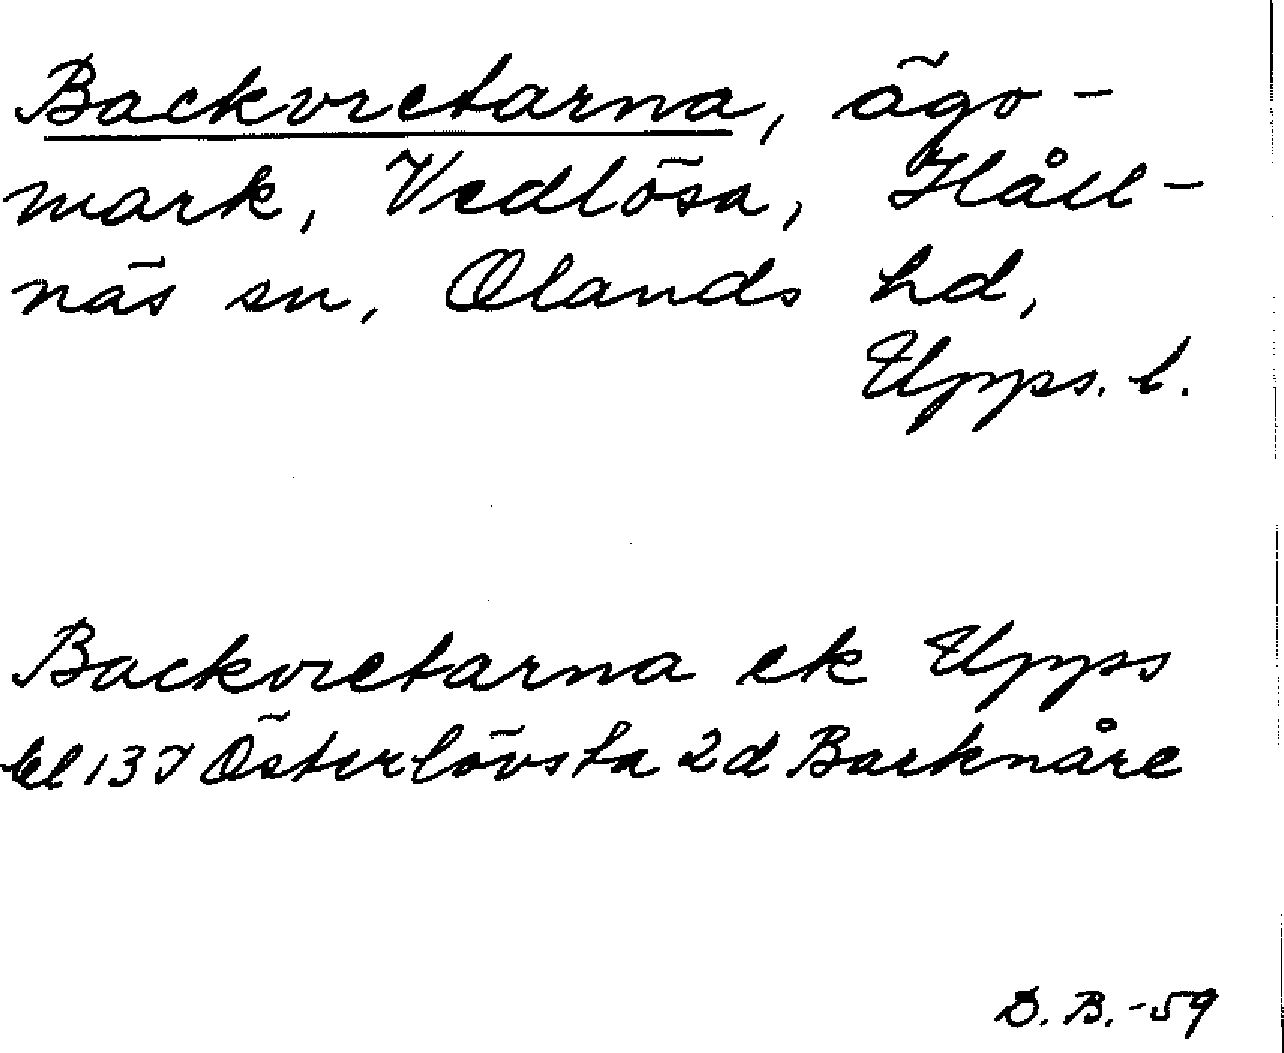 Backvretarna, ägo-
mark, Vedlösa, Håll-
näs sn, Olands hd,
Upps. l.
Backvretarna ek Upps
bl 13 I Österlövsta 2d Barknåre
D. B. -59